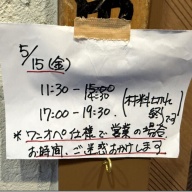 5/15(金)
11:30-14:30
17:00-19:30.
(材料なくなれば終了です)
*ワンオペ仕様で営業の場合
お時間、ご迷惑おかけします